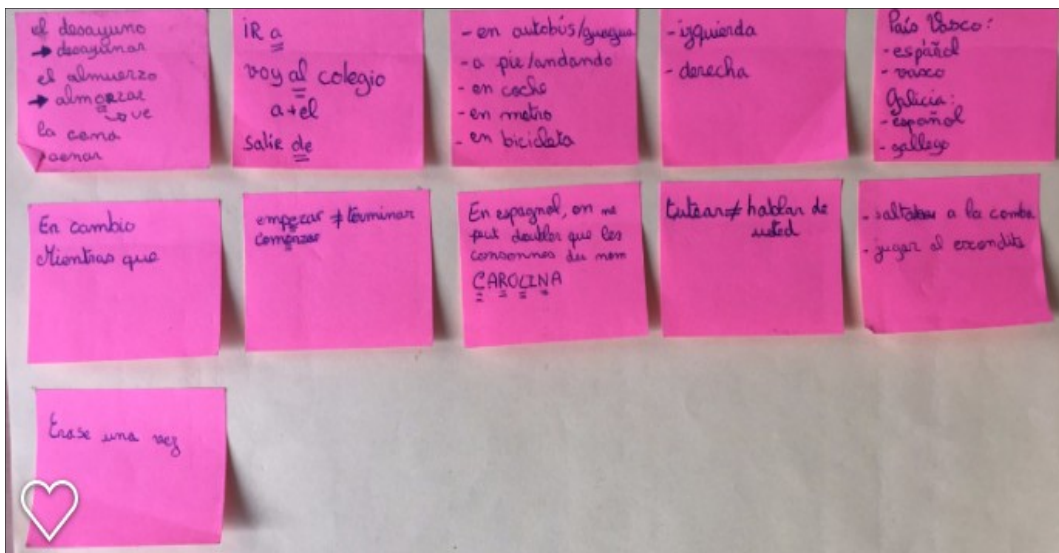 el desayuno
→ desayunar
el almuerzo
→ almorzar
ue
la cena
cenar
iR a
voy al colegio
a+el
saliR de
- en autobús/guagua
- a pie/andando
- en coche
- en metro
- en bicicleta
- izquierda
- derecha
País Vasco:
- español
- vasco
Galicia:
- español
- gallego
En cambio
Mientras que
empezar ≠ terminar
comenzar
En espagnol, on ne
peut doubler que les
consonnes du nom
CAROLINA
tutear ≠ hablar de
usted
- saltar a la comba
- jugar al escondite
Erase una vez